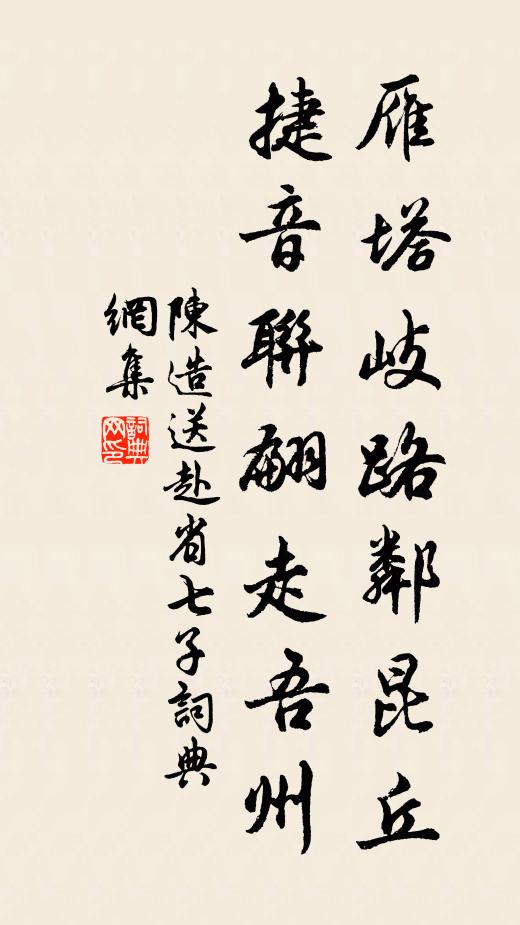 雁塔歧路鄰昆丘
捷音聯翩走吾州
陳造送赴省七子詞典
網集
詞典網印